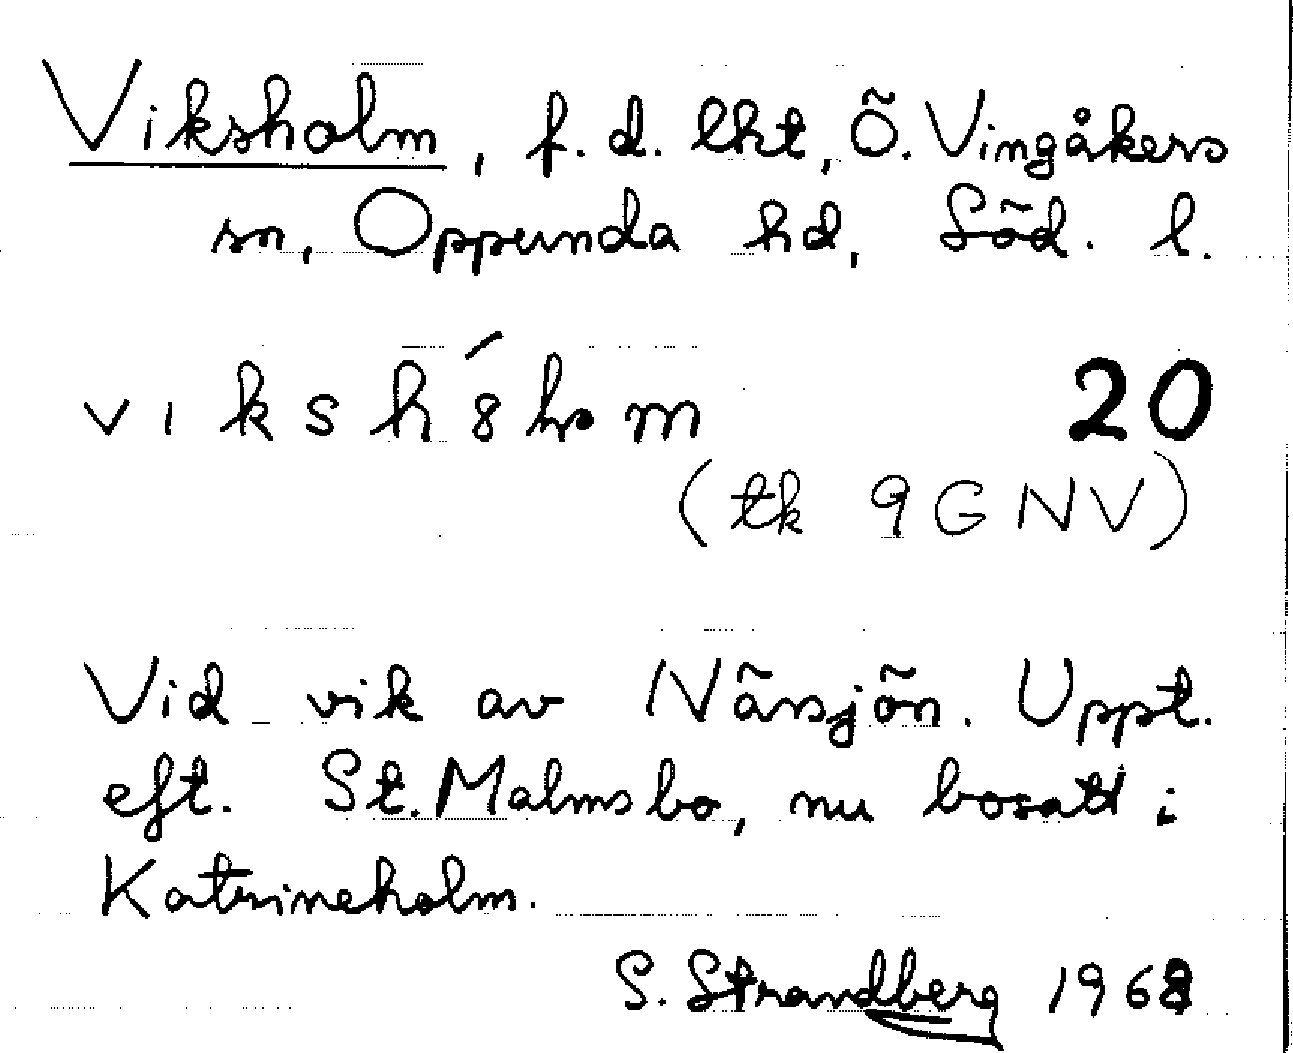 Viksholm, f.d. lht, Ö. Vingåkers
sn, Oppunda hd, Söd. l.
20
(tk 9G NV)
Vid vik av Näsnsjön. Uppt.
eft. St. Malmsbo, nu bosatt i
Katrineholm.
S. Strandberg 1968